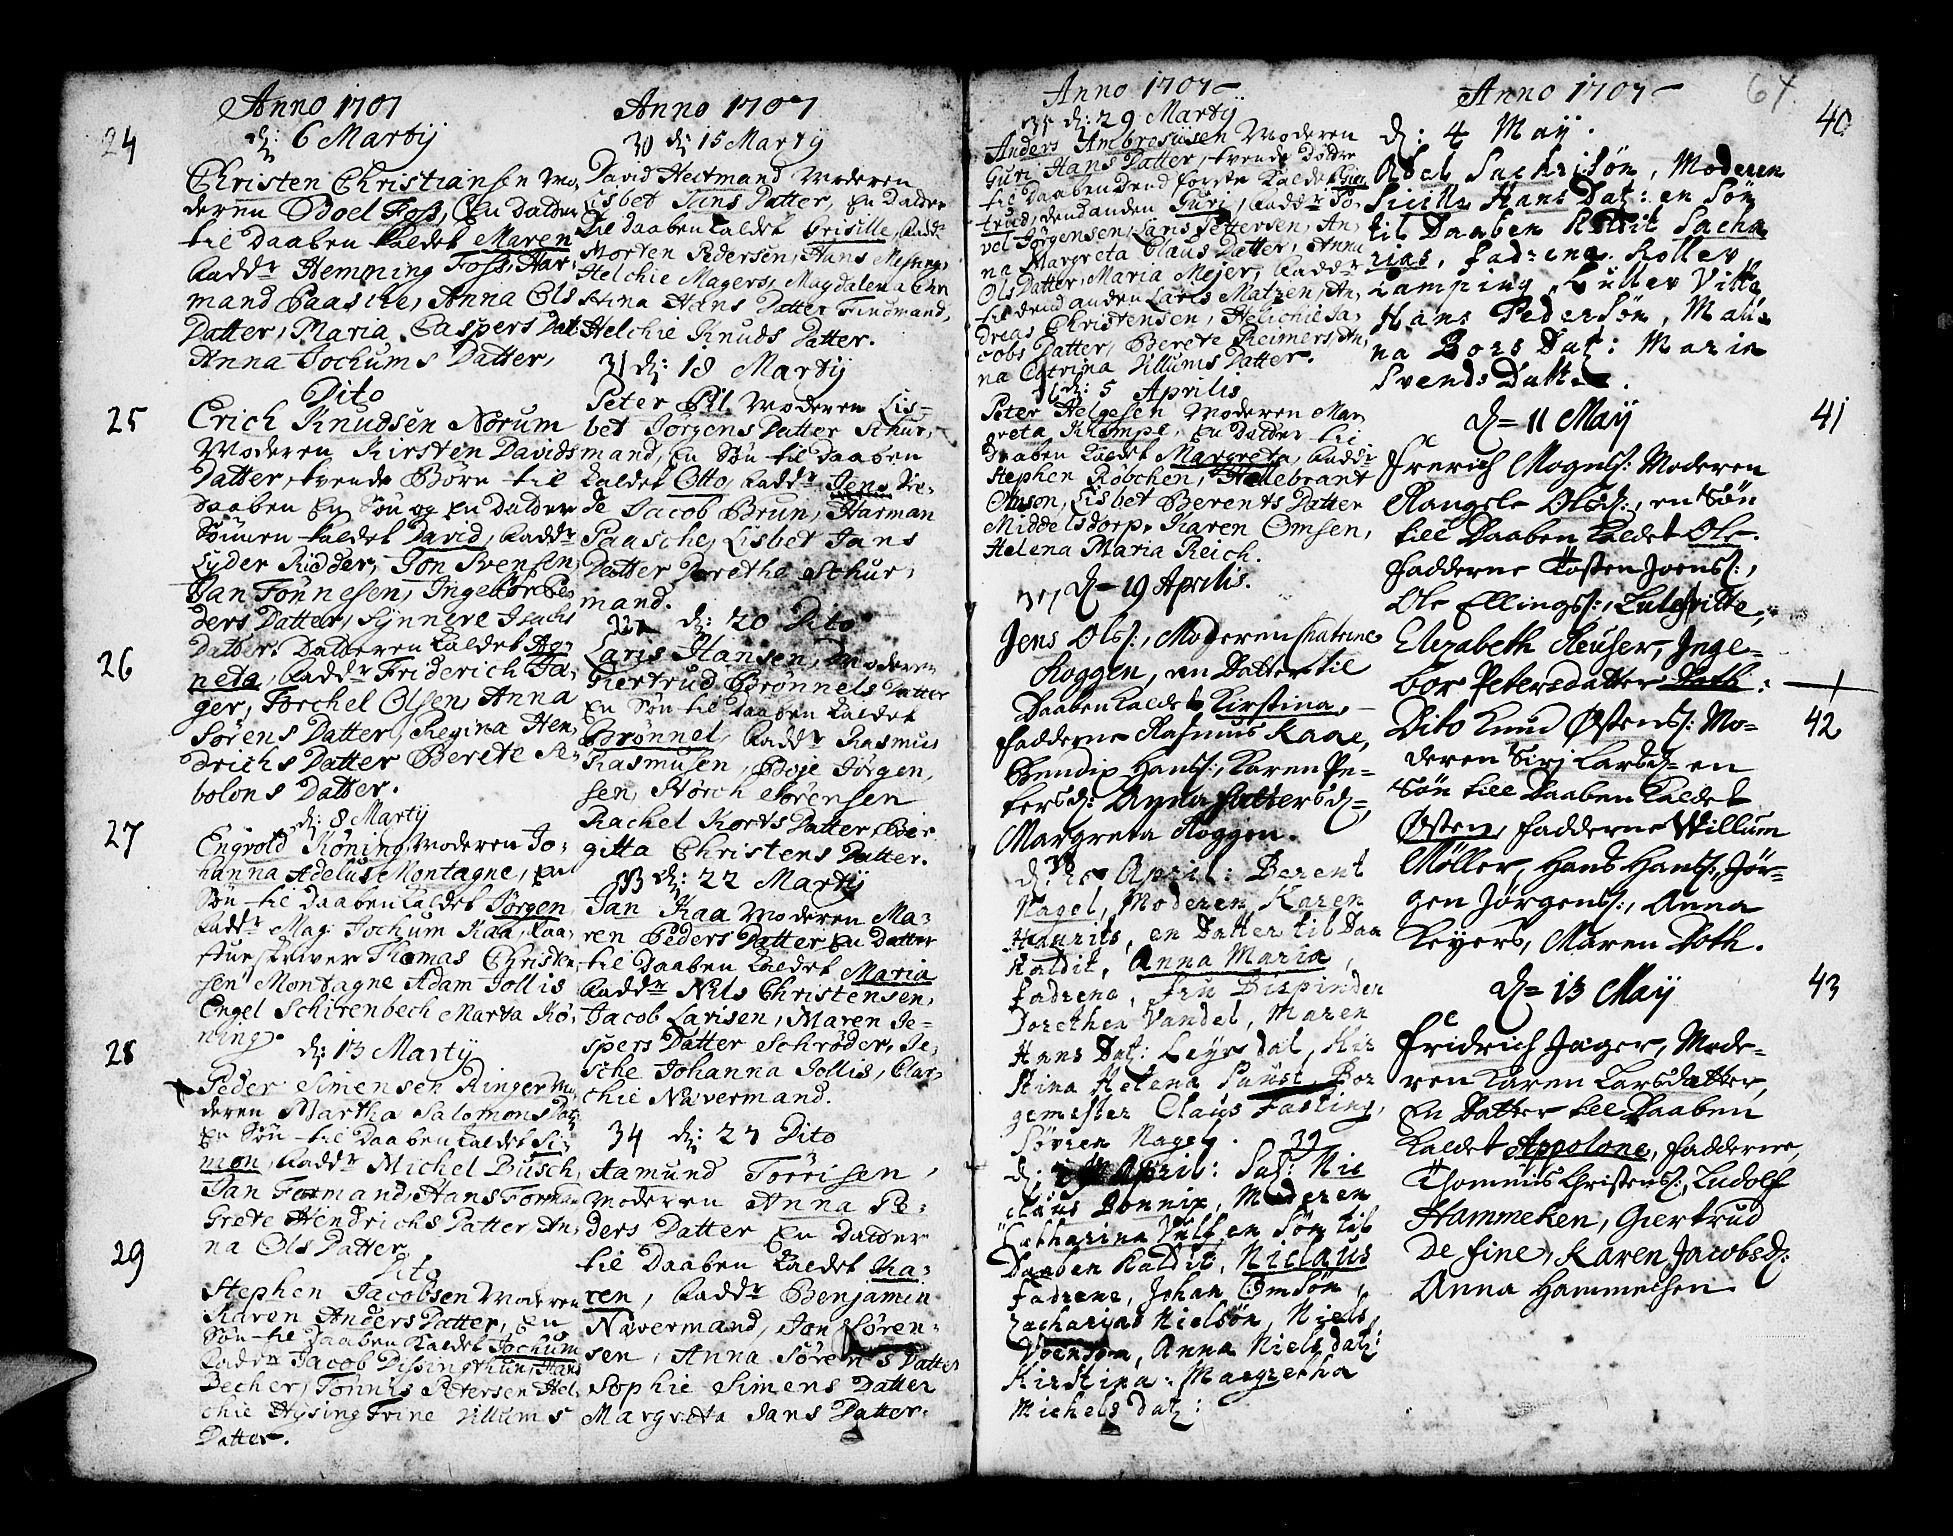 Anno 1707
24
d: 6 Martij
Christen Christiansen Mo,
deren Bodel Foss, En Datder
til Daaben kaldet Maren
Faddr Hemming Foss, Har,
mand Paasche, Anna Ols
Datter, Maria Caspers Dat
Anna Jochums Datter,
Dito
25
Erich Knudsen Norum
Moderen Kirsten Davids
Datter, tvende Börn til
Daaben En Sön og En Datder
Sönnen kaldet David, Faddr
Lyder Ridder, Jon Svensen
Jan Tönnesen, Ingebor Pe,
ders Datter, Synneve Isachs
26
Datter. Datteren Kaldet Ag,
neta, Faddr Friderich Ja,
ger, Torchel Olsen, Anna
Sörens Datter, Regina Hen,
drichs Datter Berete Se,
bolons Datter.
d: 8 Martij
27
Engvold Köning Moderen Jo,
hanna Adelus Montagne, En
Sön til Daaben Kaldet Jörgen
Faddr Mag: Jochum Kaa, Raa,
stueskriver Thomas Christen,
sen Montagne Adam Jollis
Engel Schirenbech Marta Kö,
ning.
28
d: 13 Martij
Peder Simensen Ringer Mo
deren Martha Salomons Dat
En Sön til Daaben Kaldet Si,
mon, Faddr Michel Busch,
Jan Formand, Hans Forman
Grete Hendrichs Datter, An,
na Ols Datter
29
Dito
Stephen Jacobsen Moderen
Karen Anders Datter, En
Sön til Daaben Kaldet Jochum
Faddr Jacob Dissingthun, Hans
Becher, Tönnis Petersen Hel,
chie Hysing Trine Villums
Datter.
Anno 1707
30 d: 15 Martij
David Heitmand Moderen
Lisbet Jans Datter, En Datder
til Daaben Kaldet Crisille, Faddr
Morten Pedersen, Hans Mesing,
Helchie Magers, Magdalena Ehr
Stina Hans Datter Findmand,
Helchie Knuds Datter.
31 d: 18 Martij
Peter Pil. Moderen Lis=
bet Jörgens Datter Schur,
mand, En Sön til Daaben
kaldet Otto, Faddr Jens Die,
de Jacob Brun, Harman
Paasche, Lisbet Jans
Datter Dorethe Schur,
mand.
32 d: 20 Dito
Laris Hansen, Moderen
Giertrud Brönnels Datter
En Sön til Daaben kaldet
Brönnel, Faddr Rasmus
Rasmusen, Boje Jörgen,
sen, Störch Sörensen
Rachel Korts Datter, Bir
gitta Christens Datter.
33 d: 22 Martij
Jan Kaa Moderen Ma:
ren Peders Datter En Datter
til Daaben Kaldet Maria
Faddr Nils Christensen,
Jacob Larisen, Maren Je=
spers Datter Schröder, Je,
sche Johanna Jollis, Clar,
chie Navermand.
34 d: 27 Dito
Aamund Törrisen,
Moderen Anna Pe:
ders Datter En Datder
til Daaben kaldet Ka:
ren, Faddr Benjamin
Navermand, Jon Sören:
sen, Anna Sörens Datter
Sophie Simens Datter
Margreta Jans Datter.
Anno 1707
35 d: 29 Martij
Anders Ambrosiusen Moderen
Guri Hans Datter, tvende Döttre
til Daaben Dend förste Kaldet Gier
trud, dend anden Guri, Faddr Po,
vel Jörgensen, Lars Pettersen, An,
na Margreta Claus Datter, Anna
Ols Datter, Maria Mejer, Faddr
til dend anden Laris Matzen, An,
dreas Christensen, Helichie Ja,
cobs Datter, Berete Reimers, An,
na Catrina Villums Datter.
d: 5 Aprilis
Peter Helgesen Moderen Mar
greta Klempe, En Datder til
Daaben Kaldet Margreta, Faddr
Stephen Röbchen, Hellebrant
Omson, Lisbet Berents Datter
Middelsdorp, Karen Omsen,
Helena Maria Reich.
37 d= 19 Aprilis.
Jens Ols:, Moderen Chatrine
Roggen, en Datter til
Daaben Kaldet Kirstina,
Fadderne Rasmus Kaae,
Bendix Hans:, Karen Pe=
tersd: Anna Pettersd=,
Margreta Roggen.
38
April: Berent
Nagel, Moderen Karen
Haurits, en Datter til Daa
Kaldit, Anna Maria,
Fadrene, Fru Dispinder
Dorethea Vandel, Maren
Hans Dat: Leyrdal, Kir
stina Helena Paust, Bor
gemester Claus Fasting,
Søvren Nagel.
39
April: Sal: Nic
claus Bonnix, Moderen
Catharina Vulf en Søn til
Daaben Kaldit, Niclaus
Fadrene, Johan Omsøn,
Zacharias Nielsøn, Niels
Voensøn, Anna Niels dat:
Kirstina: Margretha
Michels dat:
Anno 1707
64
40
d: 4 May.
Abel Sachrisøn, Moderen
Sicille Hans Dat: en Søn
til Daaben Kaldit Sacha
rias, Fadrene. Rollev
Lamping, Lutter Vitte
Hans Pedersøn, Mali
na Bors Dat: Marin
Svends Datter.
41
d= 11 Maij
Frerich Mogns: Moderen
Rangele Olsd:, en Søn
till Daaben kaldet Ole.
Fadderne Tosten Joens:,
Ole Ellings:, Lule Vitte,
Elizabeth Reuser, Inge=
bor Petersdatter Doth:
42
Dito Knud Østens: Mo=
deren Sirj Larsd= en
Søn till Daaben kaldet
Østen, Fadderne Willum
Møller, Hans Hans:, Jør=
gen Jørgens:, Anna
Reyers, Maren Doth.
43
d= 13 Maij
Fridrich Jager, Mode=
ren Karen Larsdatter,
En Datter till Daaben
Kaldet Appolone, Fadderne,
Thommis Christens:, Ludolf
Hammeken, Giertrud
De Fine, Karen Jacobsd:
Anna Hammelsen